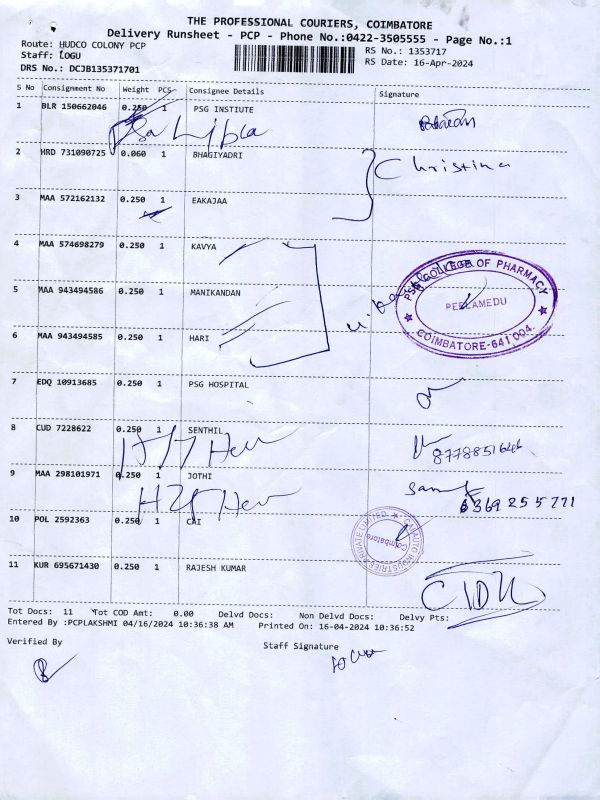 THE PROFESSIONAL COURIERS, COIMBATORE
Delivery Runsheet - PCP - Phone No.:0422-3505555 - Page No.:1
Route: HUDCO COLONY PCP
RS No.: 1353717
Staff: LOGU
RS Date: 16-Apr-2024
DRS No.: DCJB135371701
S No Consignment No Weight PCS Consignee Details Signature
1 BLR 150662046 0.250 1 PSG INSTIUTE
2 HRD 731090725 0.060 1 BHAGIYADRI Christina
3 MAA 572162132 0.250 1 EAKAJAA
4 MAA 574698279 0.250 1 KAVYA
PSG COLLEGE OF PHARMACY
5 MAA 943494586 0.250 1 MANIKANDAN
PEELAMEDU
COIMBATORE-641 004.
6 MAA 943494585 0.250 1 HARI
7 EDQ 10913685 0.250 1 PSG HOSPITAL
8 CUD 7228622 0.250 1 SENTHIL
9 MAA 298101971 0.250 1 JOTHI
10 POL 2592363 0.250 1 CAI
Coimbatore
11 KUR 695671430 0.250 1 RAJESH KUMAR
Tot Docs: 11 Tot COD Amt: 0.00 Delvd Docs: Non Delvd Docs: Delvy Pts:
Entered By :PCPLAKSHMI 04/16/2024 10:36:38 AM Printed On: 16-04-2024 10:36:52
Verified By
Staff Signature